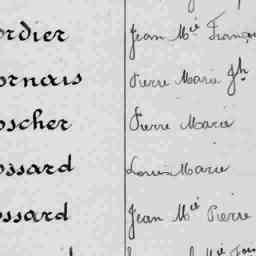 ordier Jean Mie François
ornais Pierre Marie Jh
oscher Pierre Marie
ossard Louis Marie
ossard Jean Mie Pierre